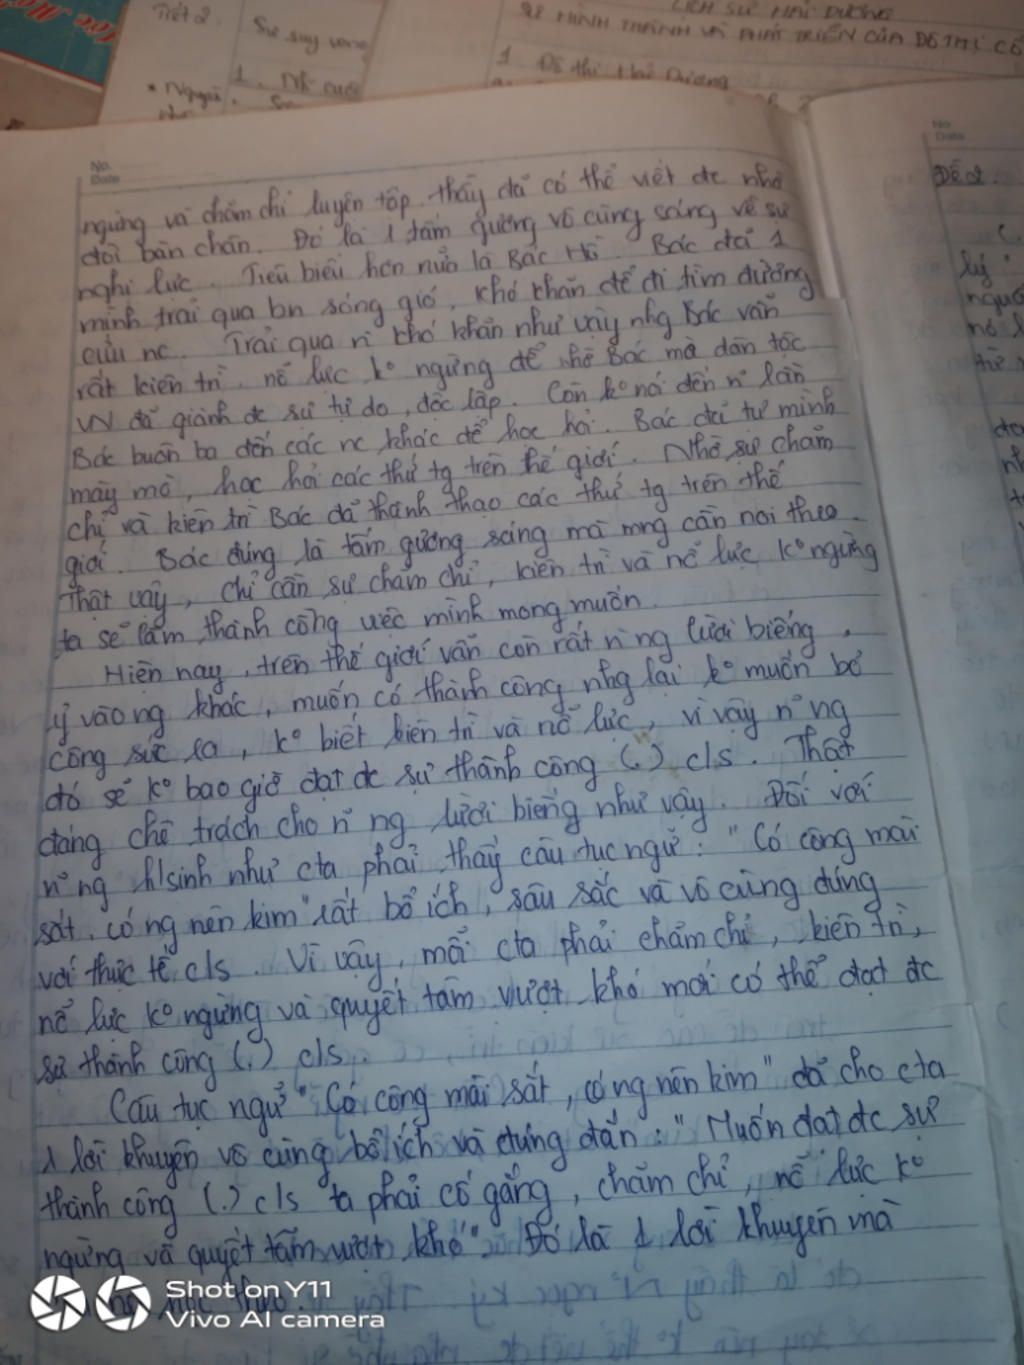 Tiết 2.
Sự suy vong
1. Nh cuối
* Nguyên
LỊCH SỬ HẢI DƯƠNG
SỰ HÌNH THÀNH VÀ PHÁT TRIỂN CỦA ĐÔ THỊ CỔ
1. Đô thị Hải Dương
No.
Date
ngừng và chăm chỉ luyện tập thầy đã có thể viết đc nhờ
đôi bàn chân. Đó là 1 tấm gương vô cùng sáng về sự
nghị lực. Tiêu biểu hơn nữa là Bác Hồ. Bác đã 1
mình trải qua bn sóng gió, khó khăn để đi tìm đường
cứu nc. Trải qua n~ khó khăn như vậy nhg Bác vẫn
rất kiên trì, nỗ lực ko ngừng để nhờ Bác mà dân tộc
VN đã giành đc sự tự do, độc lập. Còn ko nói đến n~ lần
Bác buôn ba đến các nc khác để học hỏi. Bác đã tự mình
mày mò, học hỏi các thứ tg trên thế giới. Nhờ sự chăm
chỉ và kiên trì Bác đã thành thạo các thứ tg trên thế
giới. Bác đúng là tấm gương sáng mà mng cần noi theo.
Thật vậy, chỉ cần sự chăm chỉ, kiên trì và nỗ lực ko ngừng
ta sẽ làm thành công việc mình mong muốn.
Hiện nay, trên thế giới vẫn còn rất n` ng lười biếng,
ỷ vào ng khác, muốn có thành công nhg lại ko muốn bỏ
công sức ra, ko biết kiên trì và nỗ lực, vì vậy n~ ng
đó sẽ ko bao giờ đạt đc sự thành công (.) c/s. Thật
đáng chê trách cho n~ ng lười biếng như vậy. Đối với
n~ ng h/sinh như cta phải thấy câu tục ngữ: "Có công mài
sắt, có ng nên kim" rất bổ ích, sâu sắc và vô cùng đúng
với thực tế c/s. Vì vậy, mỗi cta phải chăm chỉ, kiên trì,
nỗ lực ko ngừng và quyết tâm vượt khó mới có thể đạt đc
sự thành công (.) c/s.
Câu tục ngữ "Có công mài sắt, có ng nên kim" đã cho cta
1 lời khuyên vô cùng bổ ích và đúng đắn: "Muốn đạt đc sự
thành công (.) c/s ta phải cố gắng, chăm chỉ, nỗ lực ko
ngừng và quyết tâm vượt khó". Đó là 1 lời khuyên mà
theo.
No.
Date
Đề 2.
lý
Shot on Y11
Vivo AI camera